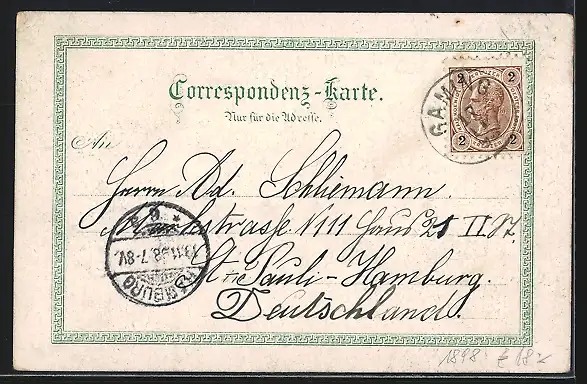 Correspondenz-Karte.
Nur für die Adresse.
An
2 2
2 2
GAMING
Herrn Ad. Schliemann.
111 Haus 21 II St.
St. Pauli-Hamburg
Deutschland.
HAMBURG
13.11.98.7-8V.
1898